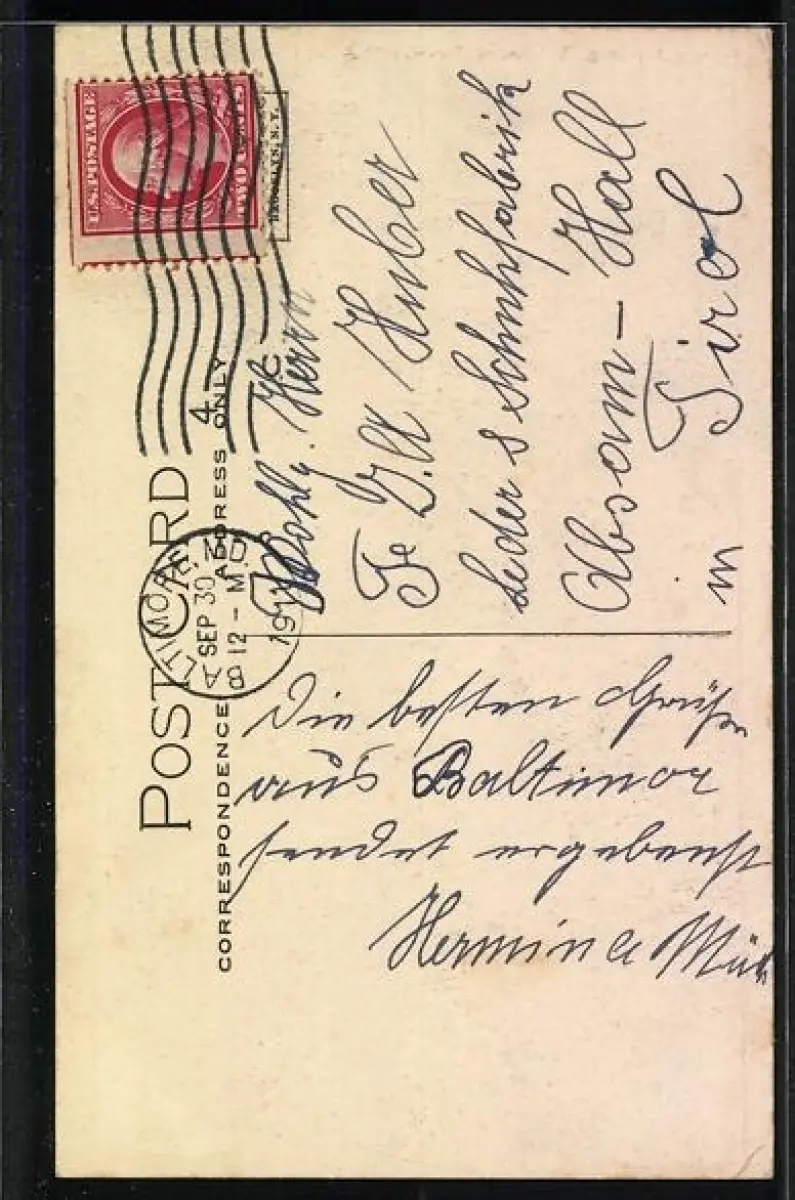 U.S. POSTAGE
TWO CENTS
BROOKLYN, N. Y.
POST CARD
CORRESPONDENCE
ADDRESS ONLY
BALTIMORE, MD.
SEP 30
12 - M
191
4
C
Wohlg. Herrn
Fe Huber
Leder & Schuhfabrik
Absam - Hall
in Tirol
Die besten Grüße
aus Baltimor
sendet ergebenst
Hermina